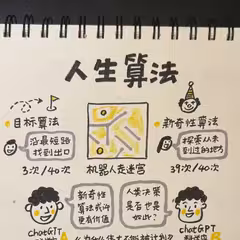 人生算法
目标算法
沿最短路
找到出口
3次/40次
机器人走迷宫
新奇性算法
探索从未
到过的地方
39次/40次
新奇性
算法或许
更有价值
人类决策
是否也是
如此?
chatGPT
A
chatGPT
B